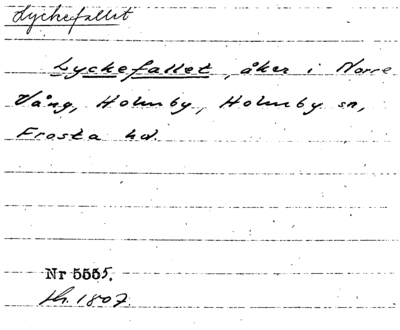 Lyckefallet
Lyckefallet, åker i Norre
Vång, Holmby, Holmby sn,
Frosta hd.
Nr 5555.
1807.